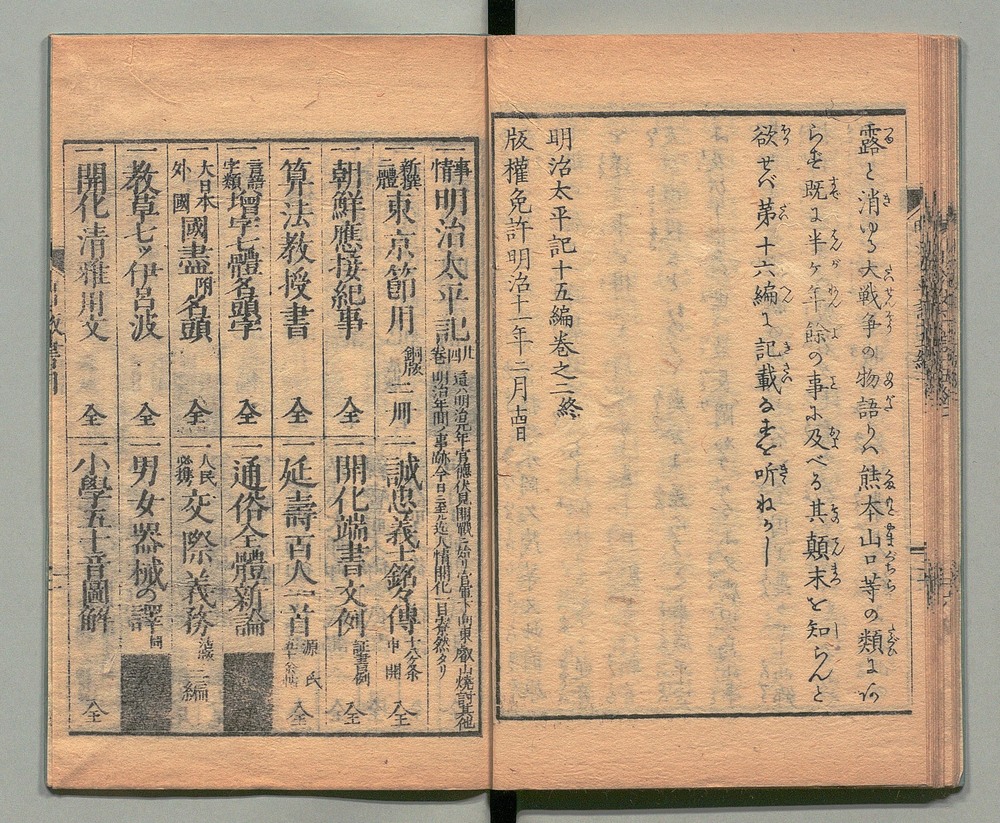 露と消ゆる大戦争の物語りハ熊本山口等の類にあ
らず既に半ヶ年余の事に及べる其顛末を知らんと
欲せバ第十六編に記載るを聴ねかし
明治太平記十五編巻之二終
版權免許明治十一年十二月
一事情明治太平記
廿四卷
這ハ明治元年官德伏見開戰ニ始リ官軍下向東叡山燒討其他
明治年間ノ事跡今日ニ至ル迄人情開化一目瞭然タリ
一新撰二體東京節用 銅版 二冊
一朝鮮應接紀事 仝
一算法教授書 仝
一言語字類增字七體名頭字 仝
一大日本外國國盡附名頭 仝
一教草七ッ伊呂波 仝
一開化清雅用文 仝
一誠忠義士銘々傳 十八ケ条申開 仝
一開化端書文例 証書例 仝
一延壽百人一首 源氏 仝
一通俗全體新論
一人民必携交際義務 三編
一男女器械の譯 同
一小學五十音圖解 仝